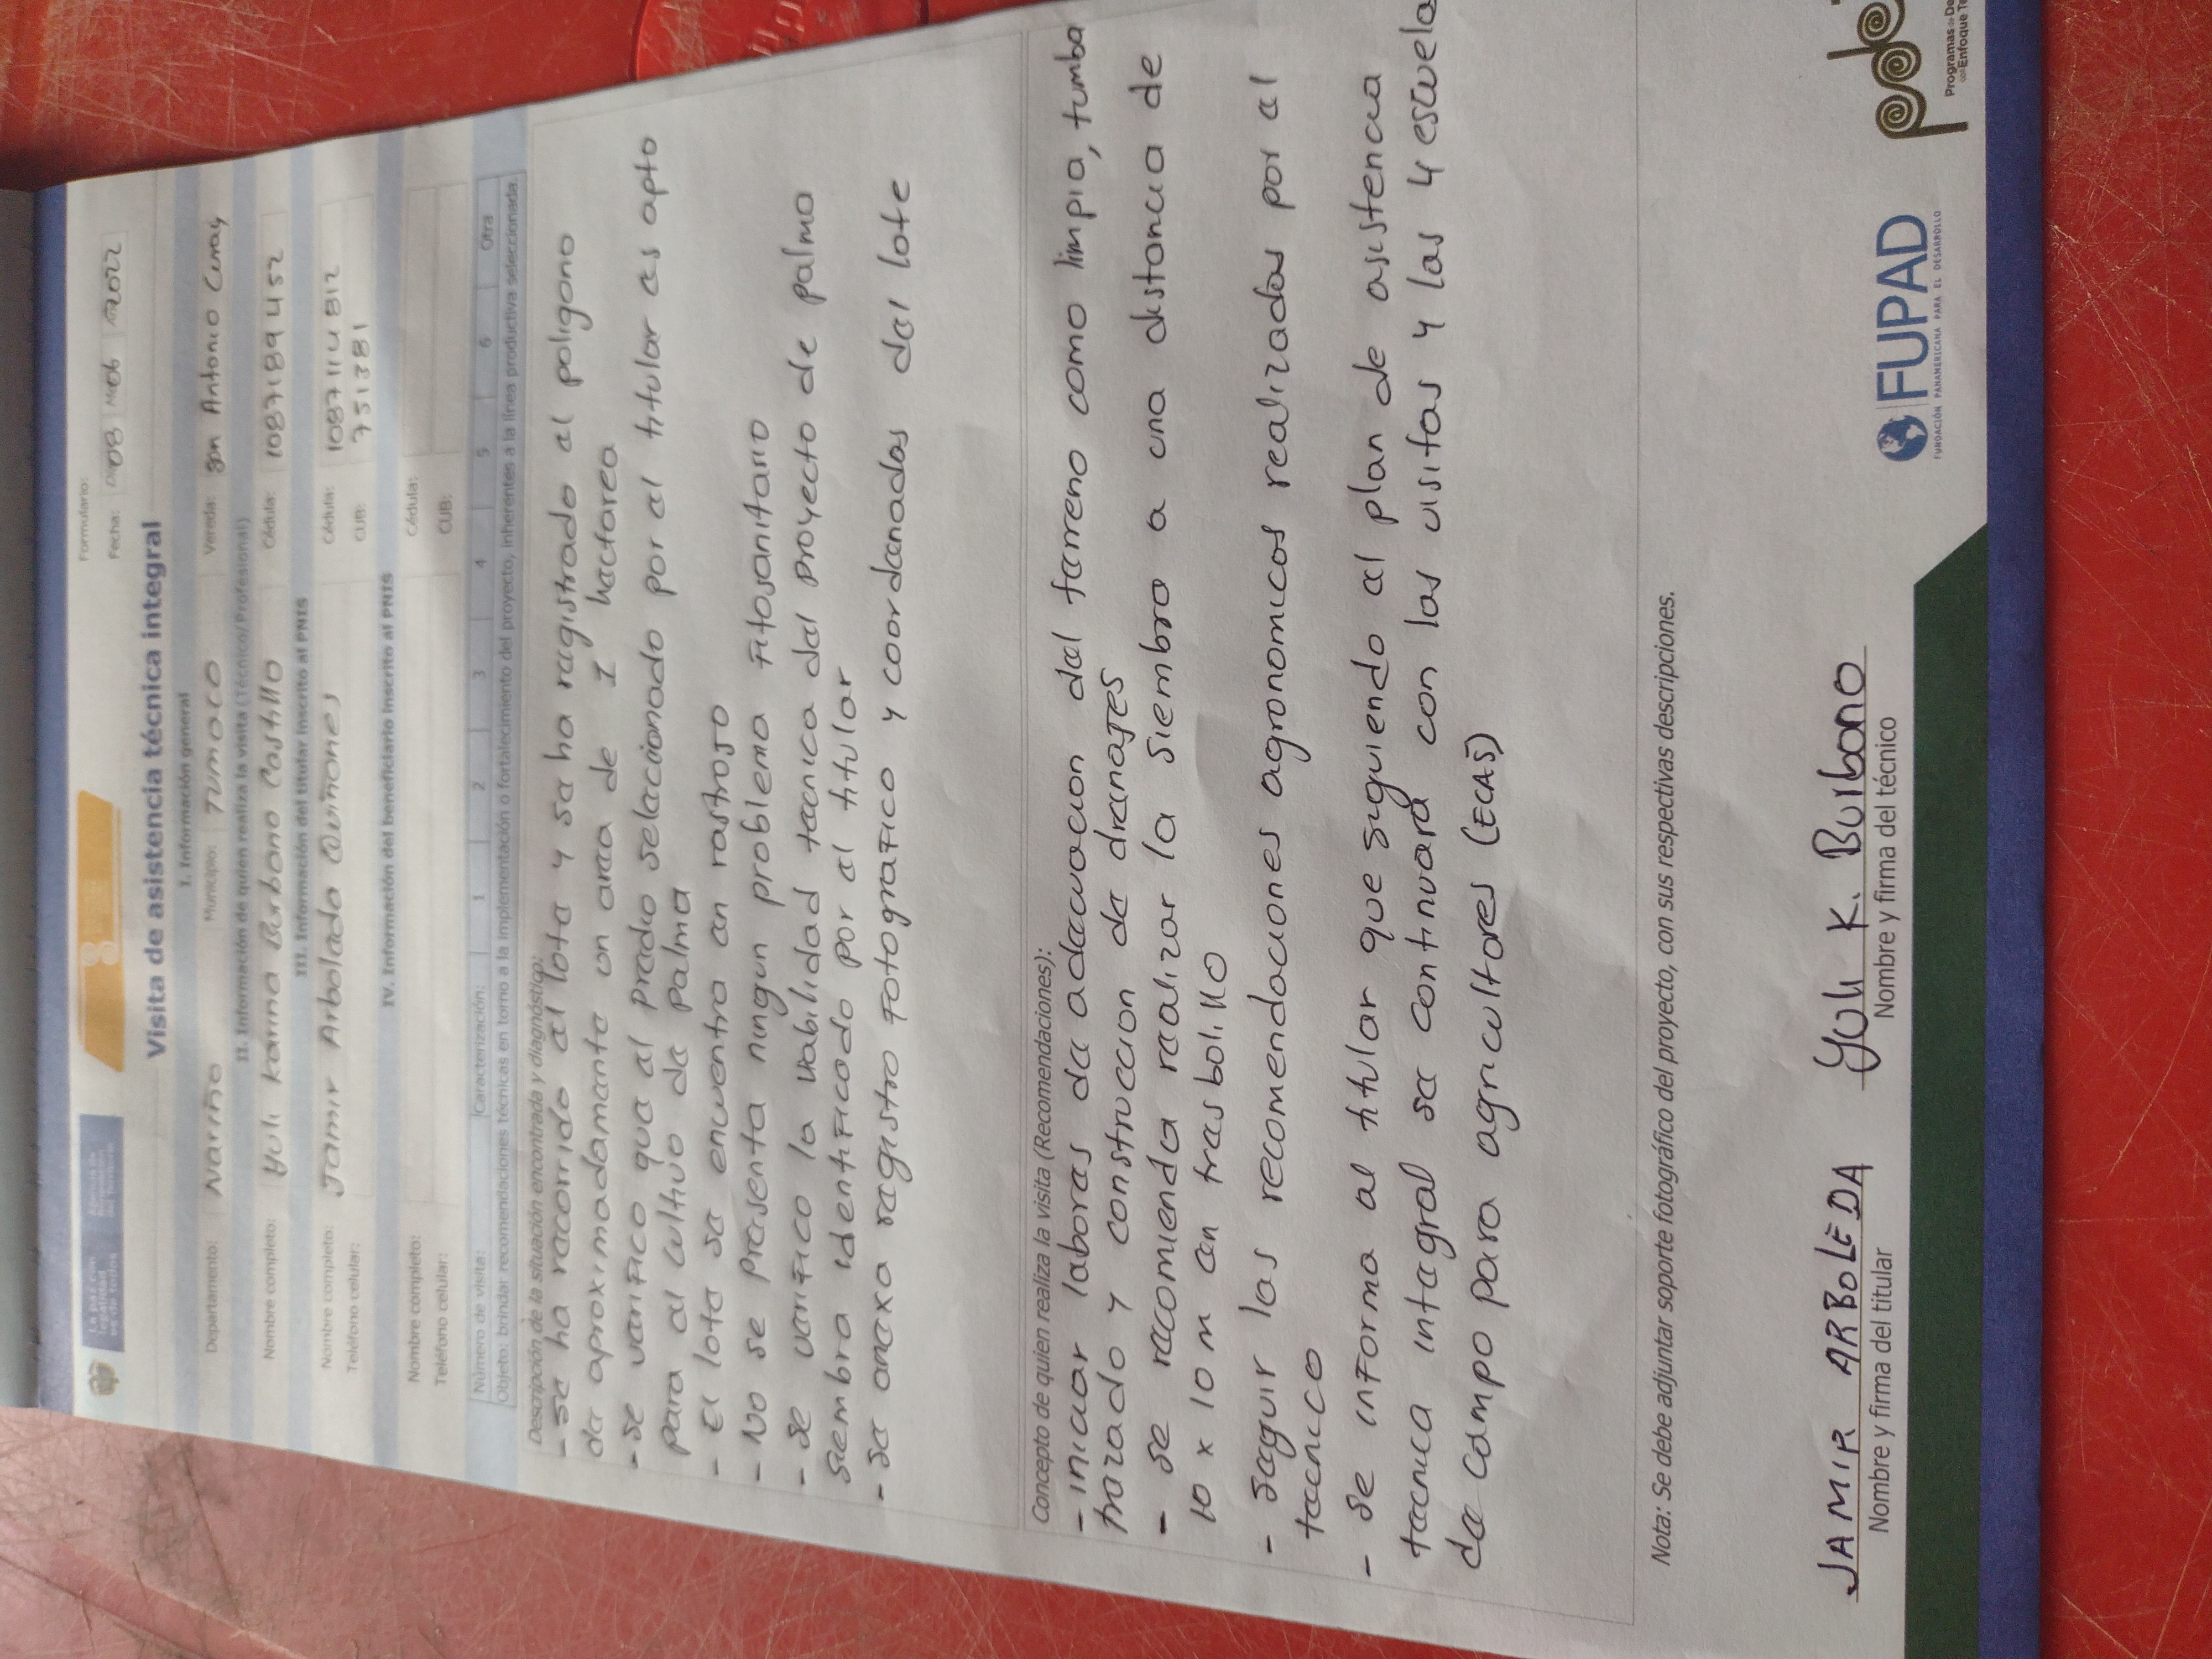 Formulario:
Fecha: D 08 M 06 A 2022
Visita de asistencia técnica integral
I. Información general
Departamento: Nariño Municipio: Tumaco Vereda: San Antonio Curay
II. Información de quien realiza la visita (Técnico/Profesional)
Nombre completo: Yuli Karina Burbano Castillo Cédula: 1087189452
III. Información del titular inscrito al PNIS
Nombre completo: Jamir Arboleda Quiñones Cédula: 1087114812
Teléfono celular: CUB: 751381
IV. Información del beneficiario inscrito al PNIS
Nombre completo: Cédula:
Teléfono celular: CUB:
Número de visita: Caracterización: 1 2 3 4 5 6 Otra
Objeto: brindar recomendaciones técnicas en torno a la implementación o fortalecimiento del proyecto, inherentes a la línea productiva seleccionada.
Descripción de la situación encontrada y diagnóstico:
- se ha recorrido el lote y se ha registrado el poligono
de aproximadamente un area de 1 hectarea
- se verifico que el predio seleccionado por el titular es apto
para el cultivo de palma
- El lote se encuentra en rastrojo
- No se presenta ningun problema fitosanitario
- se verifico la viabilidad tecnica del proyecto de palma
siembra identificado por el titular
- se anexa registro fotografico y coordenadas del lote
Concepto de quien realiza la visita (Recomendaciones):
- iniciar labores de adecuacion del terreno como limpia, tumba
trazado y construccion de drenajes
- se recomienda realizar la siembra a una distancia de
10 x 10 m en tresbolillo
- seguir las recomendaciones agronomicas realizadas por el
tecnico
- se informa al titular que siguiendo el plan de asistencia
tecnica integral se continuara con las visitas y las 4 escuela
de campo para agricultores (ECAS)
Nota: Se debe adjuntar soporte fotográfico del proyecto, con sus respectivas descripciones.
JAMIR ARBOLEDA Yuli K. Burbano
Nombre y firma del titular Nombre y firma del técnico
FUPAD
FUNDACIÓN PANAMERICANA PARA EL DESARROLLO